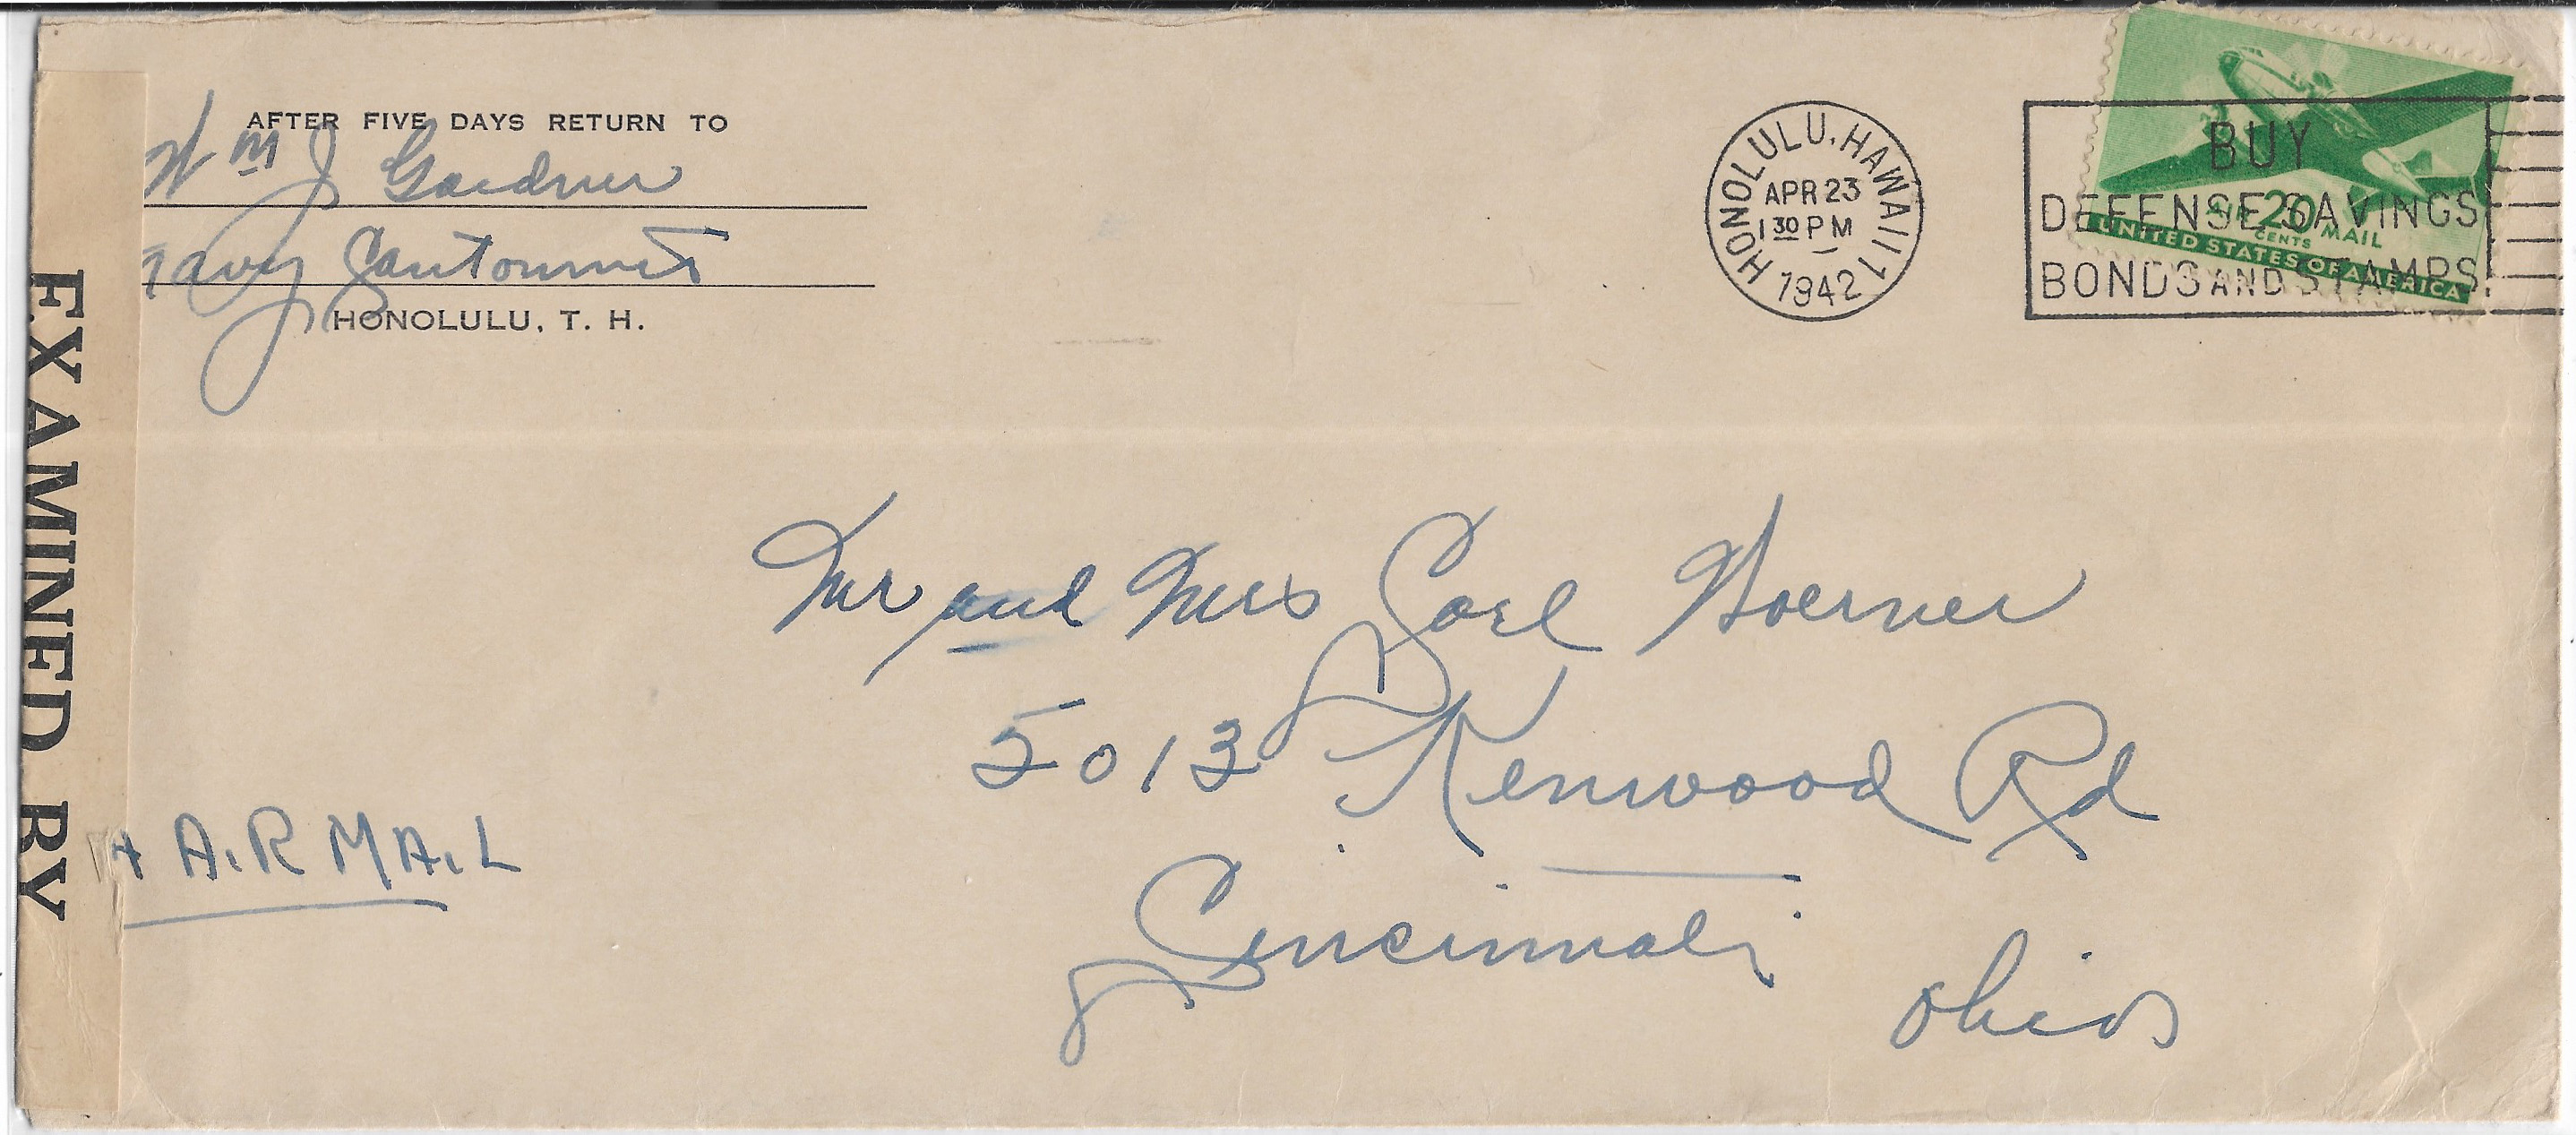 AFTER FIVE DAYS RETURN TO
Wm J Gardner
Navy Cantonment
HONOLULU, T. H.
HONOLULU, HAWAII 1
APR 23
1 30 PM
1942
BUY
DEFENSE SAVINGS
BONDS AND STAMPS
AIR 20 MAIL
CENTS
UNITED STATES OF AMERICA
EXAMINED BY
Mr and Mrs Carl Hoerner
5013 Kenwood Rd
Cincinnati
Ohio
AiRMAiL